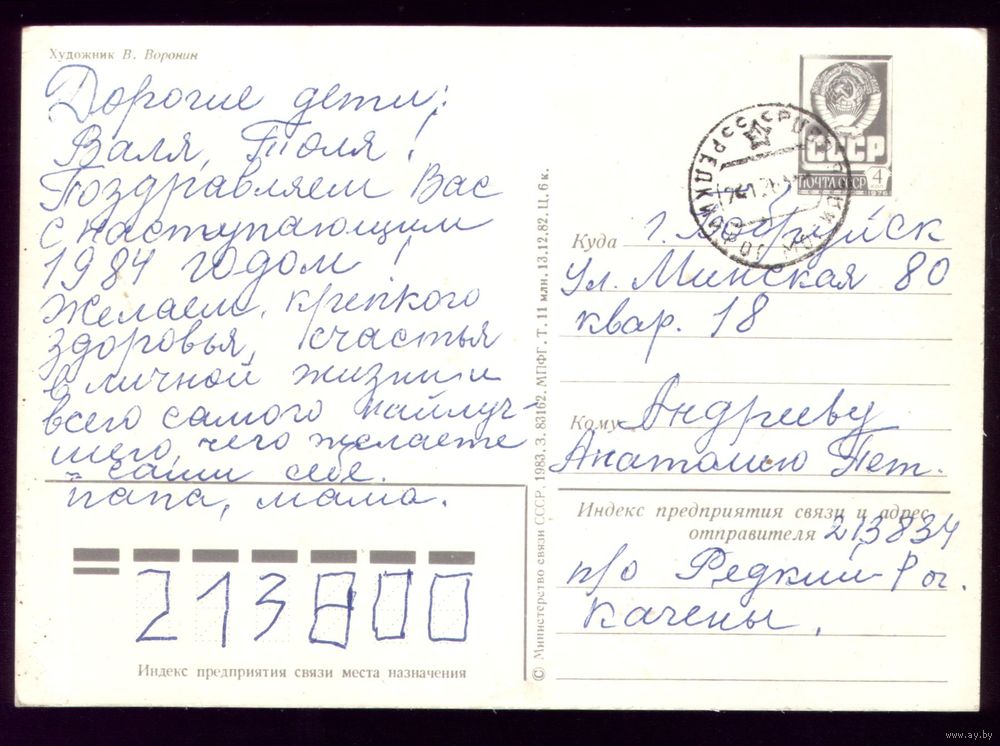 Художник В. Воронин
Дорогие дети:
Валя, Толя!
Поздравляем Вас
с наступающим
1984 годом!
Желаем крепкого
здоровья, счастья
в личной жизни и
всего самого найлуч-
шего, чего желаете
сами себе.
папа, мама.
213800
Индекс предприятия связи места назначения
© Министерство связи СССР. 1983. З. 83162. МПФГ. Т. 11 млн. 13.12.82. Ц. 6 к.
СССР
ПОЧТА СССР 4 коп
1976
Куда г. Бобруйск
ул. Минская 80
квар. 18
Кому Андрееву
Анатолию Пет.
Индекс предприятия связи и адрес
отправителя 213834
п/о Редкий Рог.
Качены.
www.ay.by